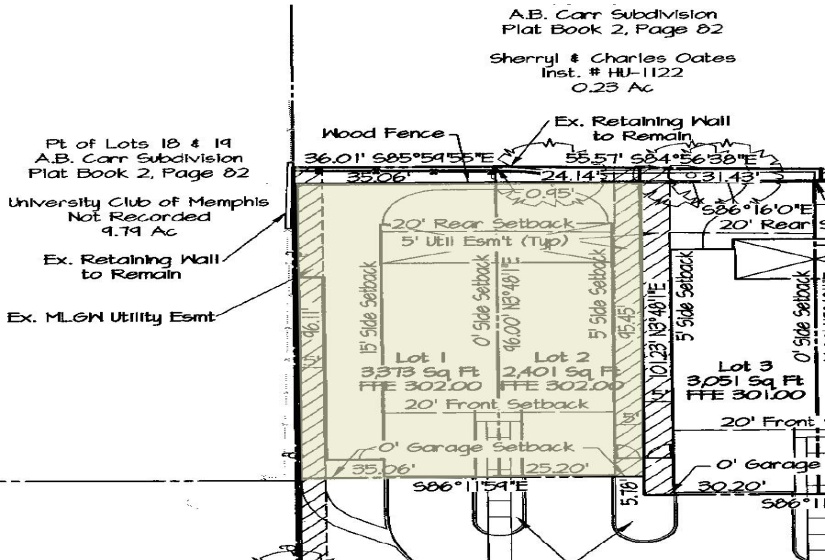 A.B. Carr Subdivision
Plat Book 2, Page 82
Sherryl & Charles Oates
Inst. # HU-1122
0.23 Ac
Pt of Lots 18 & 19
A.B. Carr Subdivision
Plat Book 2, Page 82
University Club of Memphis
Not Recorded
9.79 Ac
Ex. Retaining Wall
to Remain
Ex. MLGW Utility Esmt
Wood Fence
Ex. Retaining Wall
to Remain
36.01' S85°59'55"E
55.57' S84°56'38"E
35.06'
24.14'
31.43'
0.95'
S86°16'0"E
20' Rear Setback
5' Util Esm't (Typ)
20' Rear
96.11'
15' Side Setback
0' Side Setback
96.00' N3°48'1"E
5' Side Setback
95.45'
101.23' N3°48'1"E
5' Side Setback
0' Side Setback
5'
Lot 1
3,373 Sq Ft
FFE 302.00
Lot 2
2,401 Sq Ft
FFE 302.00
Lot 3
3,051 Sq Ft
FFE 301.00
20' Front Setback
5'
5'
20' Front
0' Garage Setback
0' Garage
35.06'
25.20'
30.20'
S86°11'59"E
5.78'
S86°11